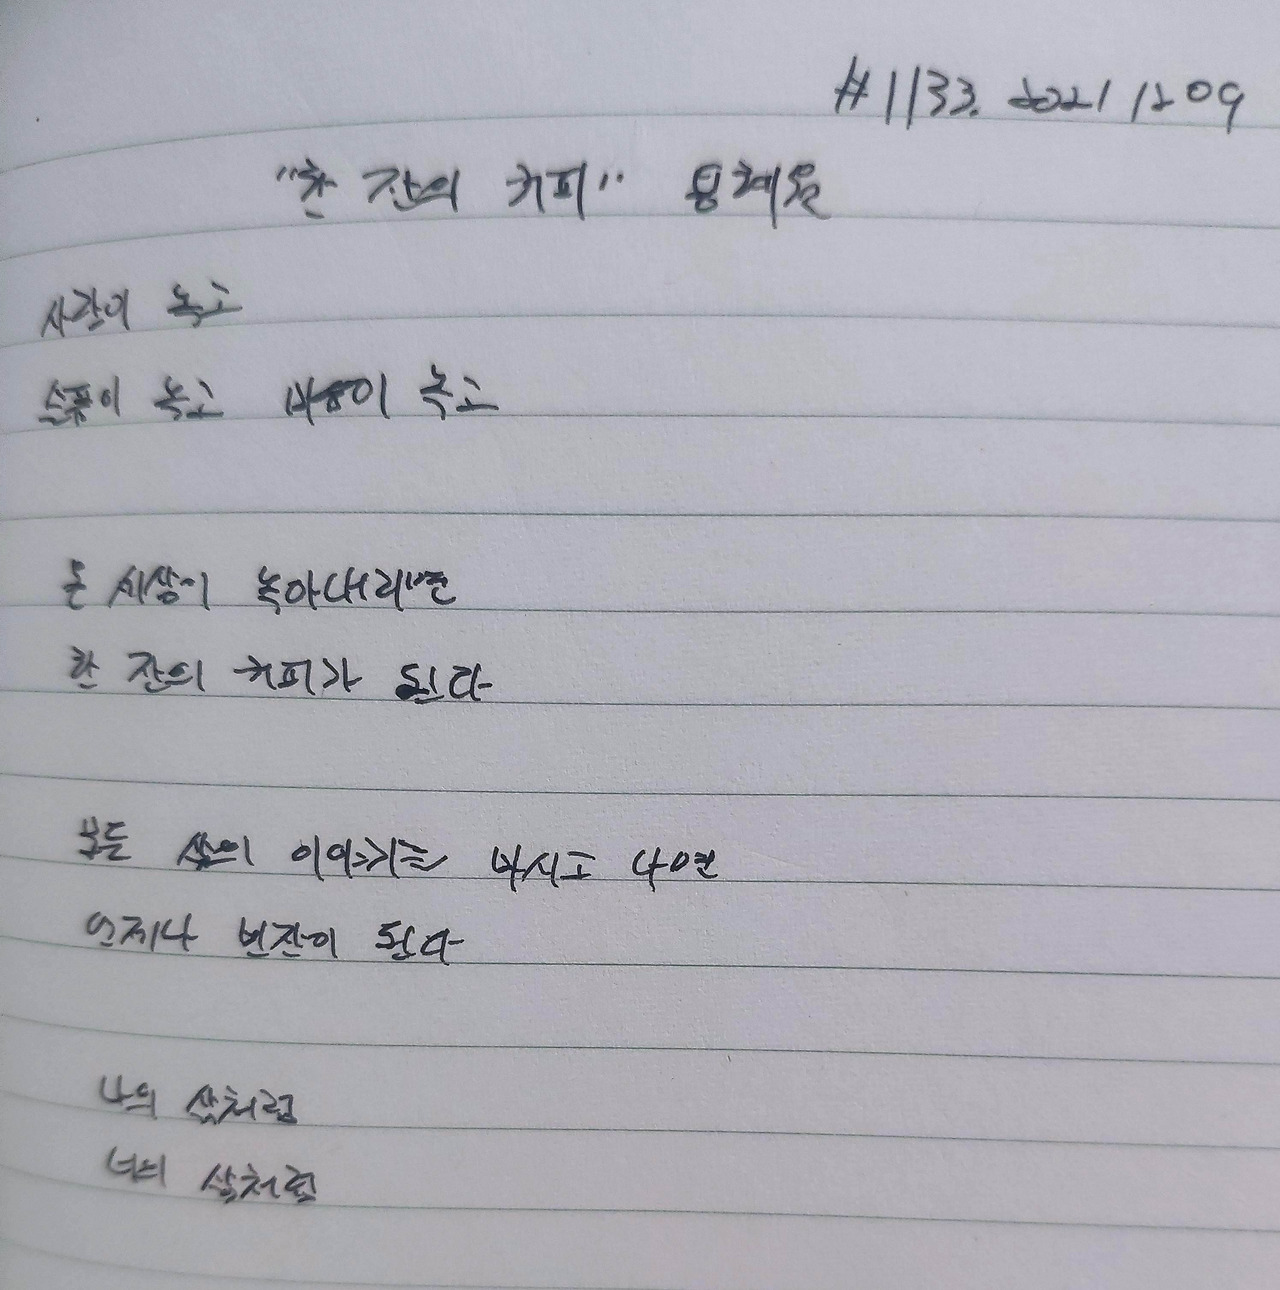 #1133. 2021 12 09
"한 잔의 커피" 용혜원
사랑이 녹고
슬픔이 녹고 마음이 녹고
온 세상이 녹아내리면
한 잔의 커피가 된다
모든 삶의 이야기를 마시고 나면
언제나 빈잔이 된다
나의 삶처럼
너의 삶처럼